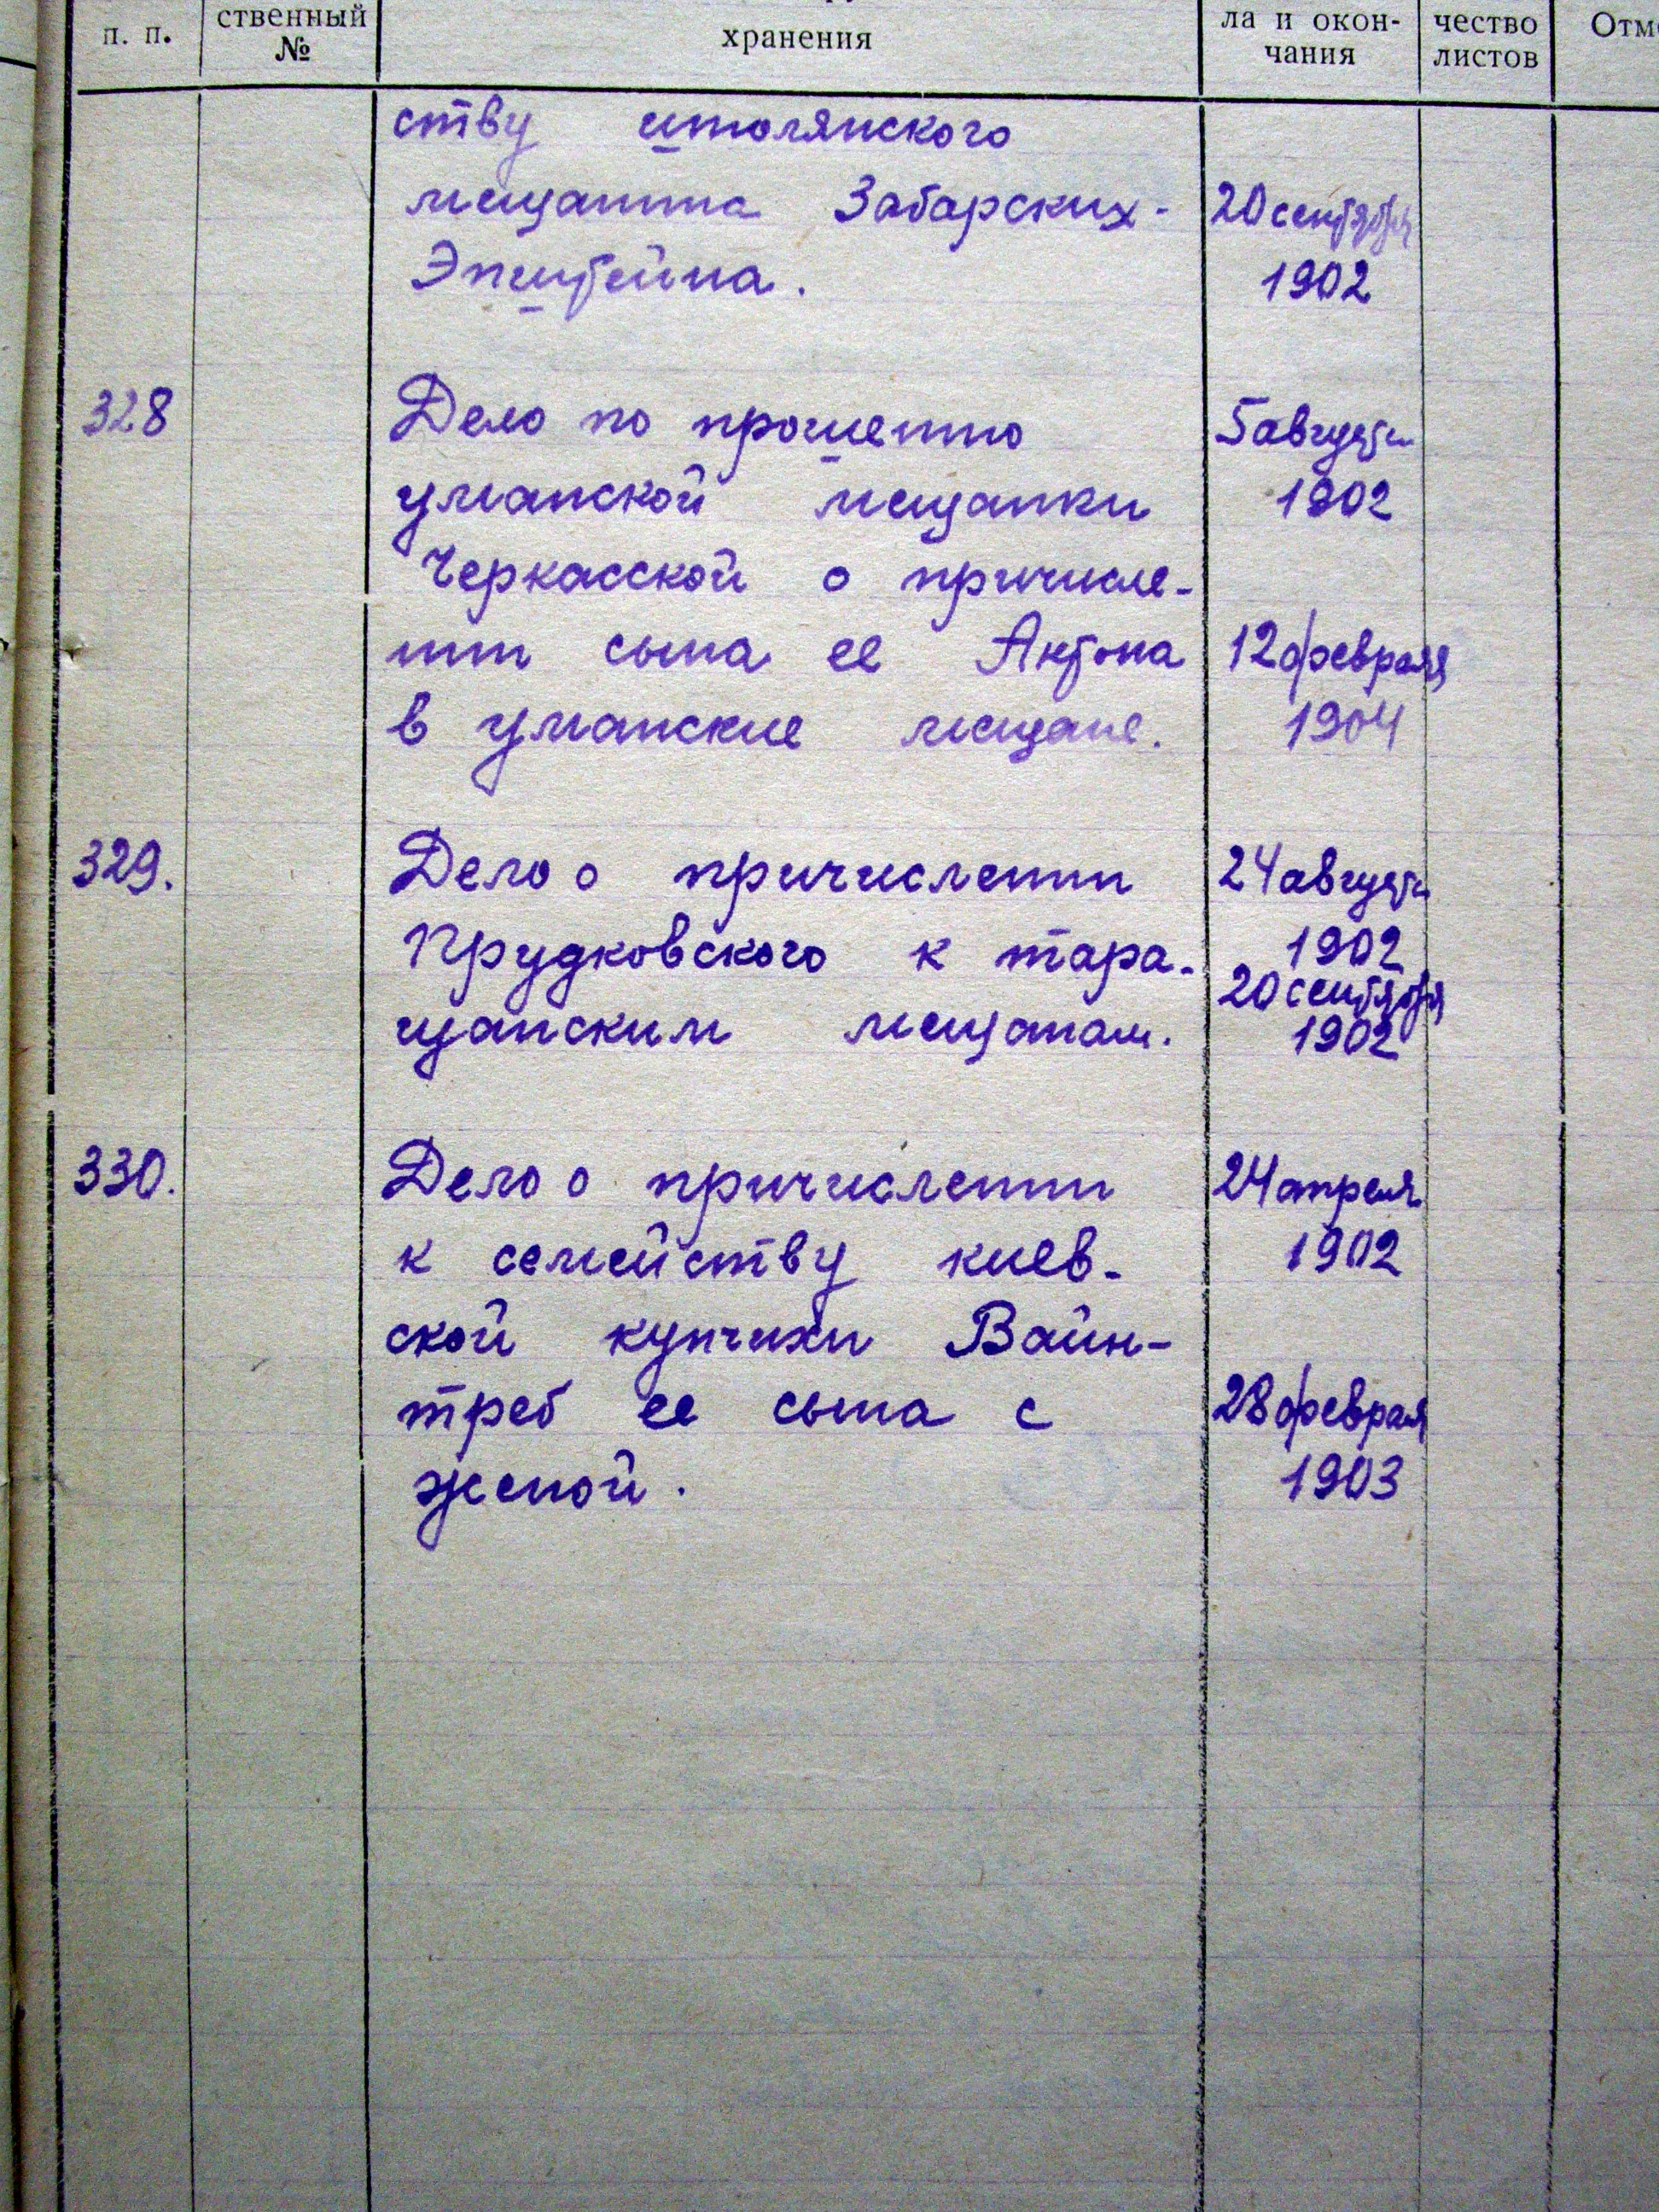 п. п.
ственный
№
хранения
ла и окон-
чания
чество
листов
Отм
ству штолянского
мещанина Забарских-
20 сентября
Эпштейна.
1902
328
Дело по прошению
5 августа
уманской мещанки
1902
Черкасской о причисле-
нии сына ее Антона
12 февраля
в уманские мещане.
1904
329.
Дело о причислении
24 августа
Прудковского к тара-
1902
20 сентября
щанским мещанам.
1902
330.
Дело о причислении
24 апреля
к семейству киев-
1902
ской купчихи Вайн-
треб ее сына с
28 февраля
женой.
1903